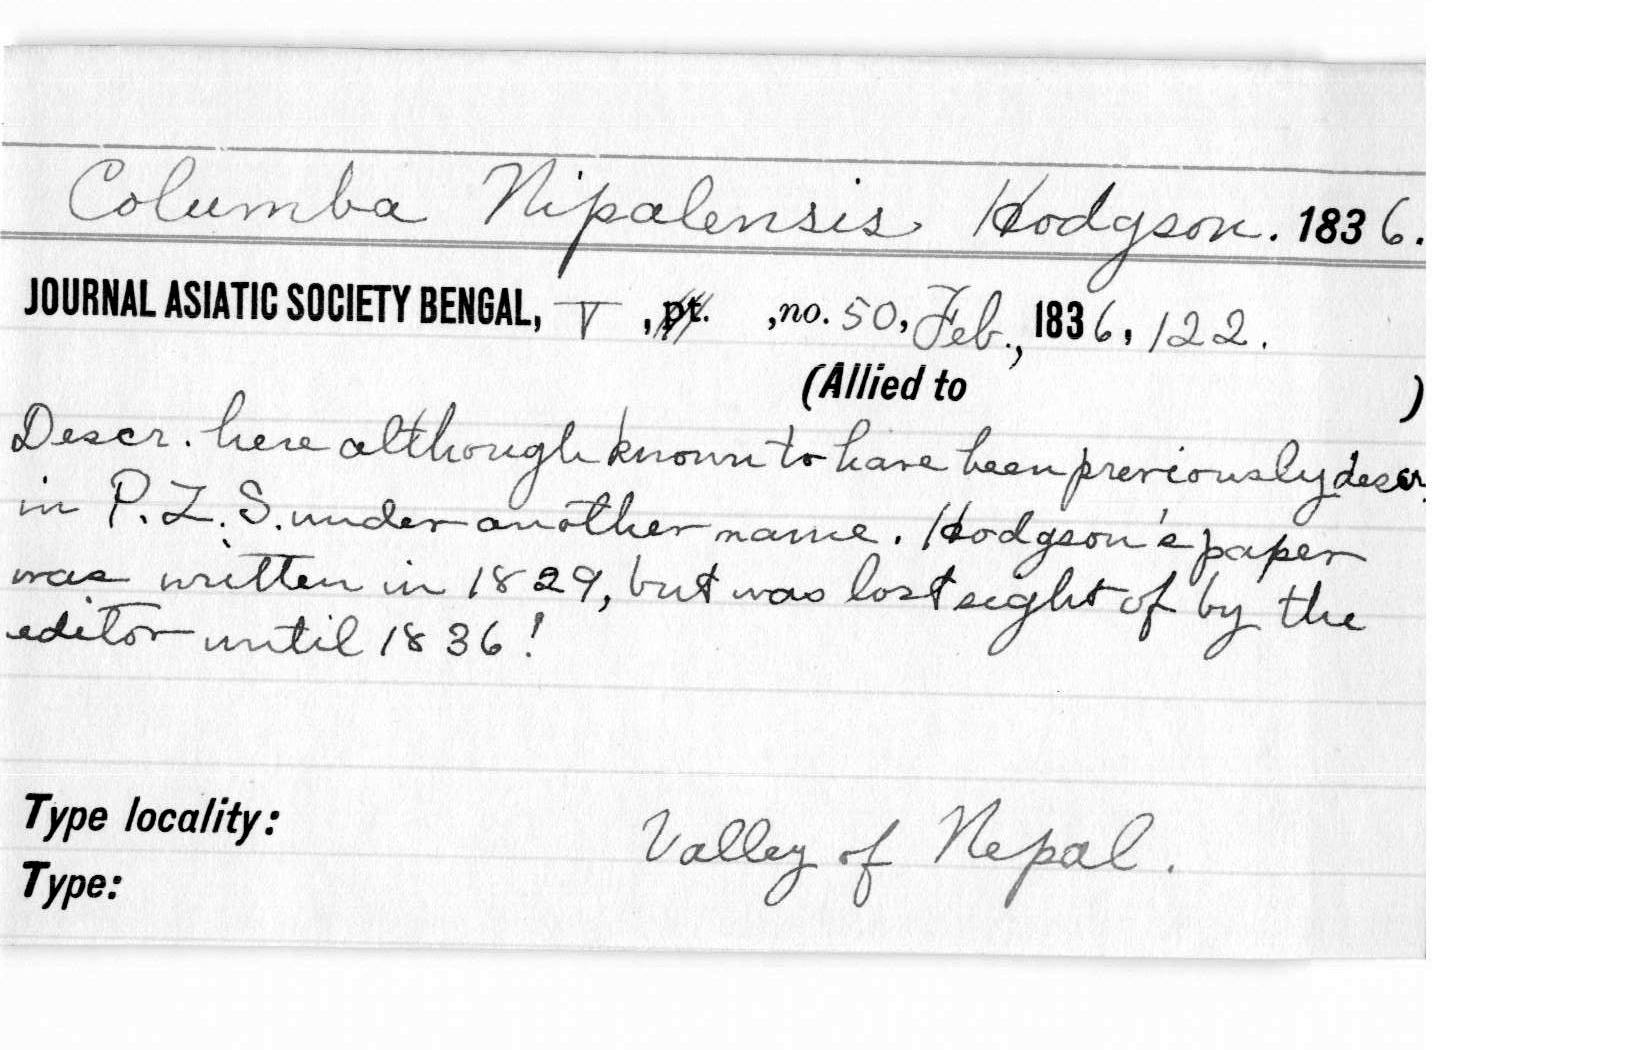 Columba Nipalensis Hodgson. 1836.
JOURNAL ASIATIC SOCIETY BENGAL, V, pt. , no. 50, Feb., 1836, 122.
(Allied to )
Descr. here although known to have been previously descr.
in P. Z. S. under another name. Hodgson's paper
was written in 1829, but was lost sight of by the
editor until 1836!
Type locality: Valley of Nepal.
Type: